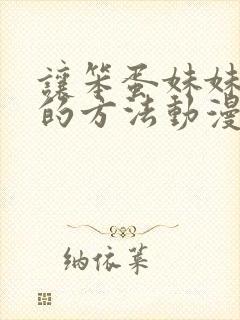 讓笨蛋妹妹
的方法動漫
纳依莱